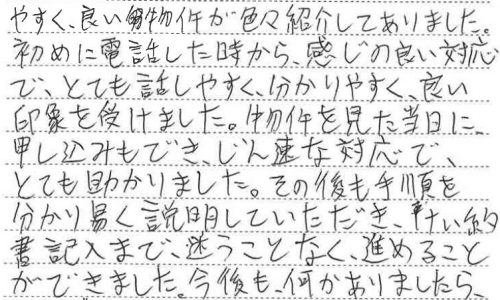 やすく、良い物件が色々紹介してありました。
初めに電話した時から、感じの良い対応
で、とても話しやすく、分かりやすく、良い
印象を受けました。物件を見た当日に、
申し込みもでき、じん速な対応で、
とても助かりました。その後も手順を
分かり易く説明していただき、約
書記入まで、迷うことなく、進めること
ができました。今後も、何かありましたら、